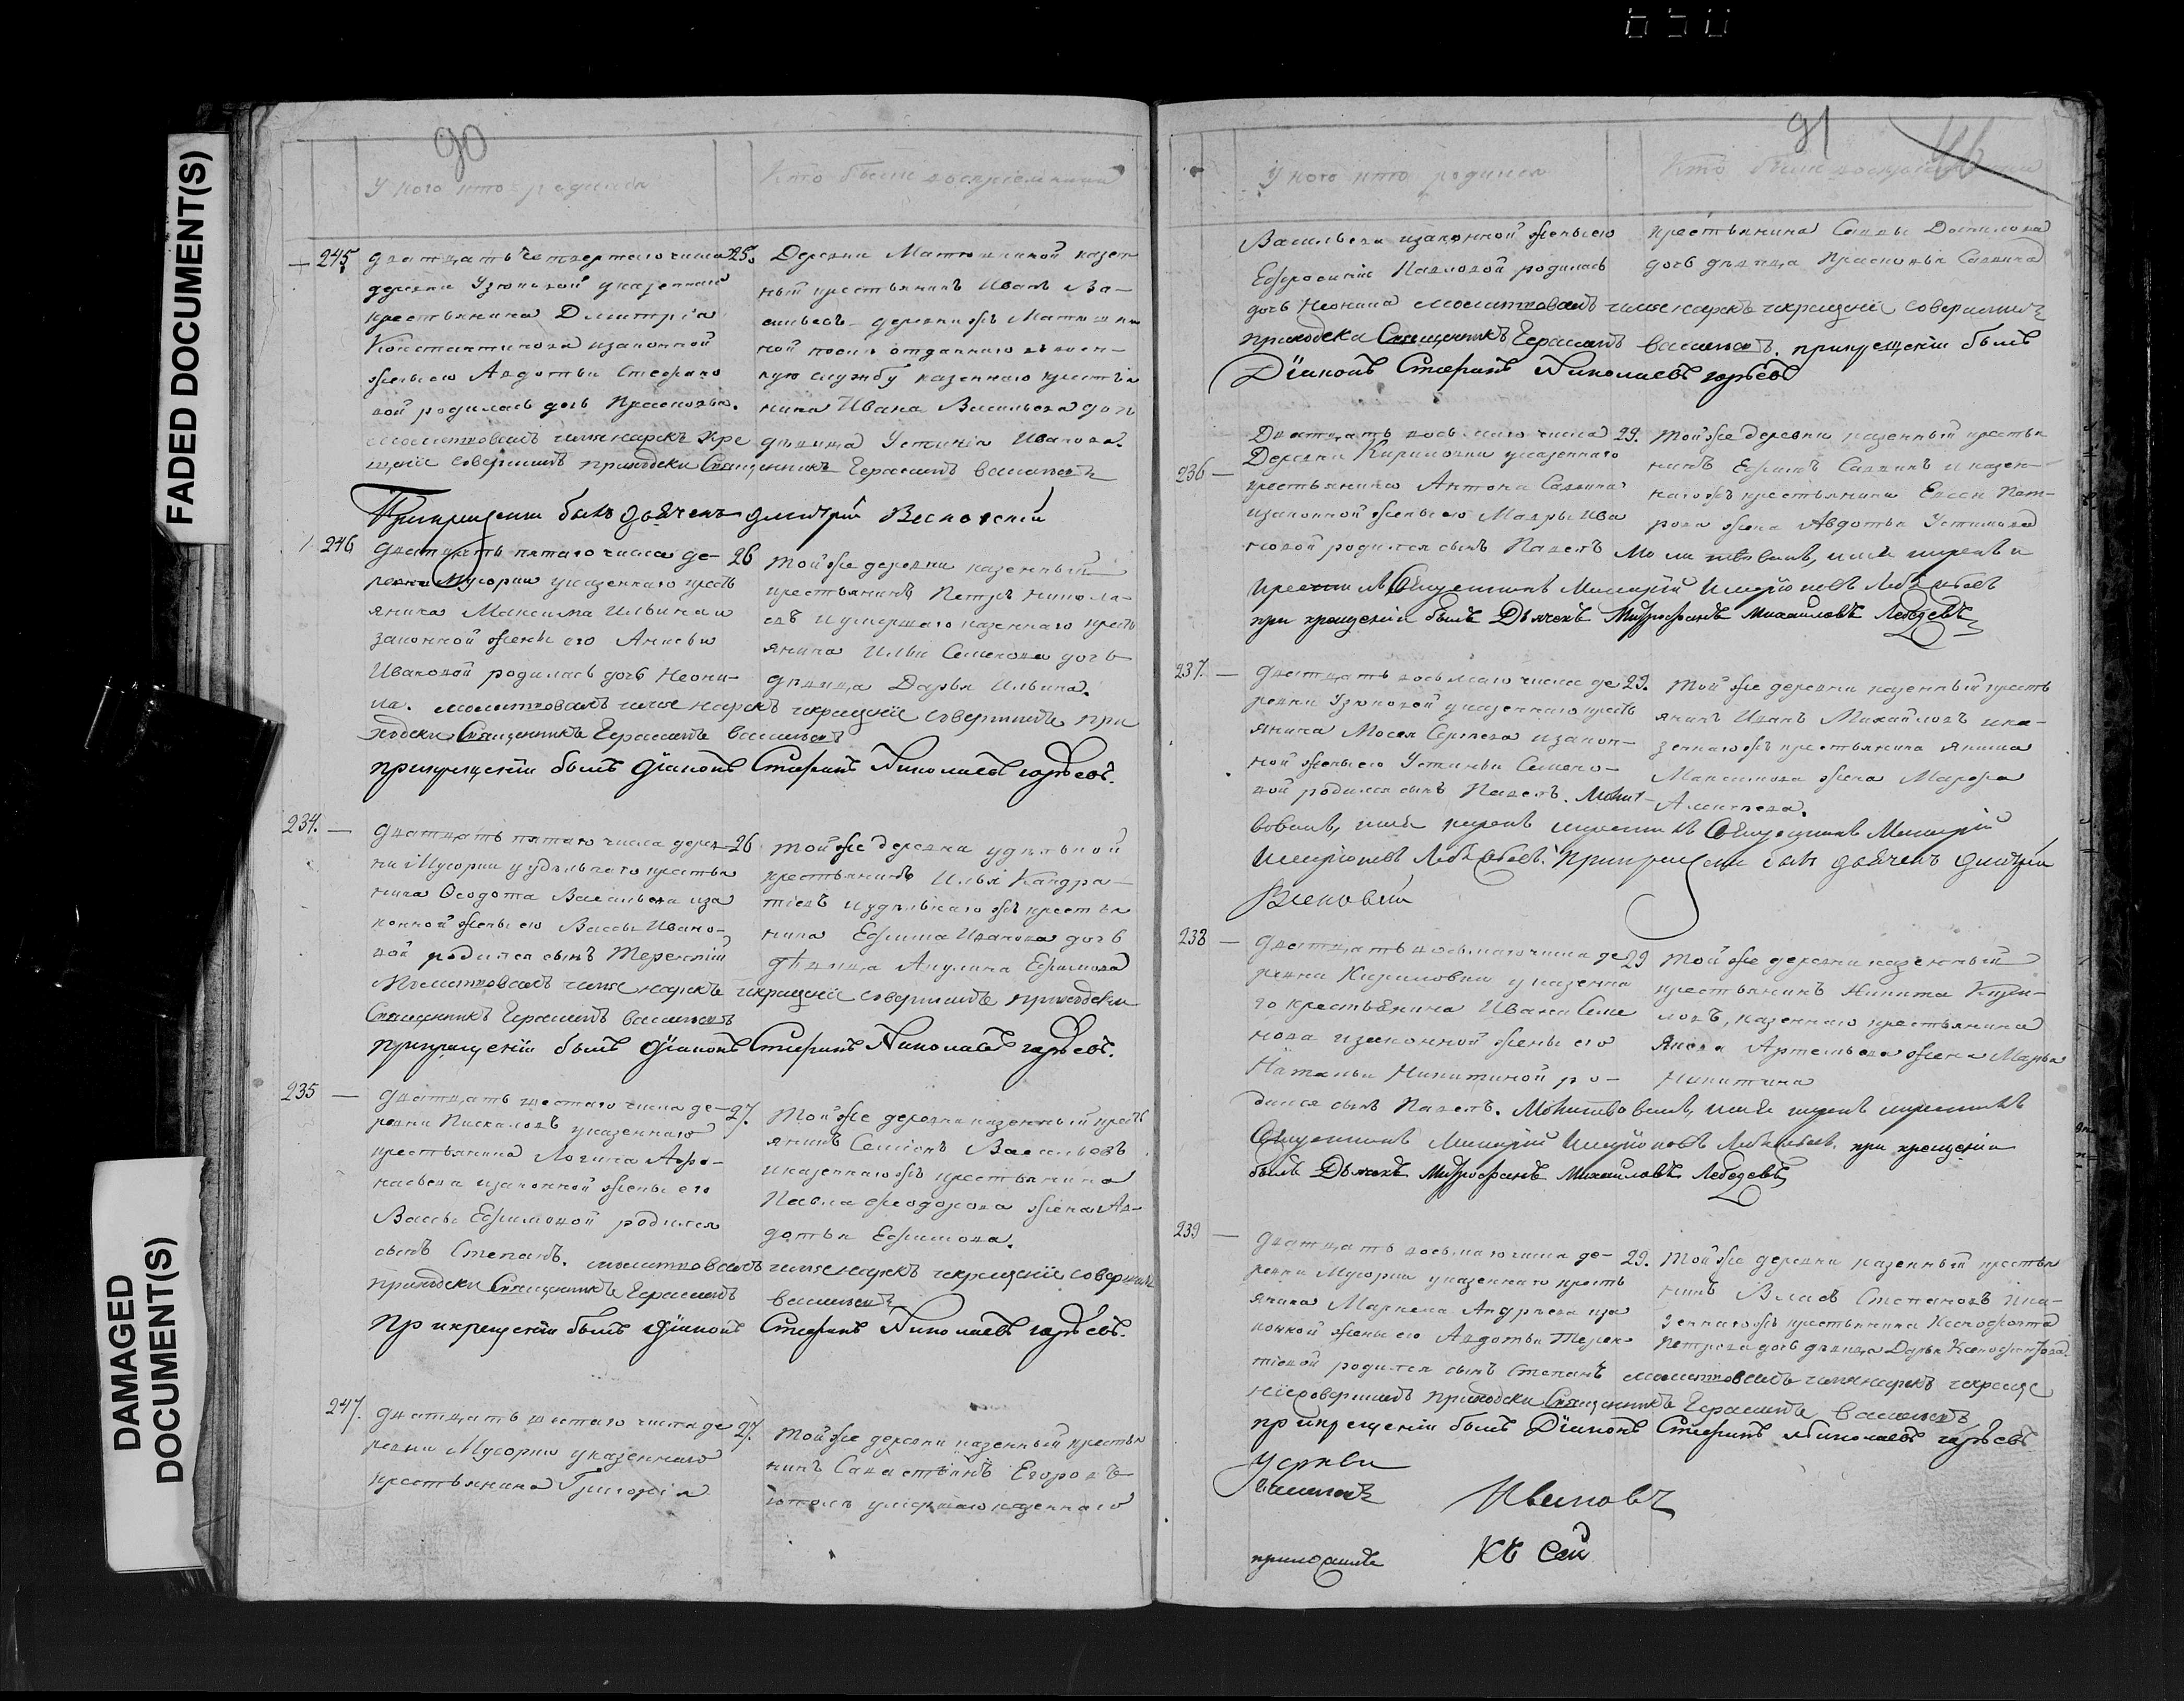 FADED DOCUMENT(S)
DAMAGED
DOCUMENT(S)
90
У кого кто родился
Кто были восприемники
245
двадцать четвертаго числа
деревни Узюковой у казеннаго
крестьянина Дмитрія
Константинова изаконной
жены его Авдотьи Стефано
вой родилась дочь Прасковья.
молитвовалъ имя нарекъ икре
щеніе совершилъ приходски Священникъ Герасимъ Васильевъ
25.
Деревни Матюшкиной казен
ный крестьянинъ Иванъ Ва-
сильевъ деревни жъ Матюшки
ной отданнаго въ воен-
ную службу казеннаго крестья
нина Ивана Васильева дочь
дѣвица Устинія Иванова.
Прикрещеніи былъ дьячекъ дмитрій
246
двадцать пятаго числа де-
ревни Мусорки у казеннаго кресть
янина Максима Ильина и
законной жены его Анисьи
Ивановой родилась дочь Неони-
ла. молитвовалъ имя нарекъ икрещеніе совершилъ при
ходски Священникъ Герасимъ Васильевъ
26
той же деревни казенный
крестьянинъ Петръ Никола-
евъ и умершаго казеннаго кресть
янина Ильи Семенова дочь
дѣвица Дарья Ильина.
прикрещеніи былъ діаконъ Стефанъ Николаевъ
234.
двадцать пятаго числа дерев
ни Мусорки у удѣльнаго крестья
нина Ѳеодота Васильева иза
конной жены его Вассы Ивано-
вой родился сынъ Терентій
Молитвовалъ имя нарекъ икрещеніе совершилъ приходски
Священникъ Герасимъ Васильевъ
26
той же деревни удѣльной
крестьянинъ Илья Кандра-
тіевъ и удѣльнаго жъ крестья
нина Ефима Иванова дочь
дѣвица Акулина Ефимова
прикрещеніи былъ діаконъ Стефанъ Николаевъ
235
двадцать шестаго числа де-
ревни Пискаловъ у казеннаго
крестьянина Логина Афо-
насьева изаконной жены его
Вассы Ефимовой родился
сынъ Степанъ. молитвовалъ имя нарекъ икрещеніе совершилъ
приходски Священникъ Герасимъ Васильевъ
27.
Той же деревни казенный кресть
янинъ Семіонъ Васильевъ
и казеннаго жъ крестьянина
Павла Феодорова жена Ав-
дотья Ефимова.
При крещеніи былъ діаконъ Стефанъ Николаевъ
247.
двадцать шестаго числа де
ревни Мусорки у казеннаго
крестьянина Григорія
27.
Той же деревни казенный крестья
нинъ Савастьянъ Егоровъ
умершаго казеннаго
91
46
У кого кто родился
Кто были восприемники
Васильева изаконной жены его
Ефросиніи Павловой родилась
дочь Неонила молитвовалъ имя нарекъ икрещеніе совершилъ
приходски Священникъ Герасимъ Васильевъ. прикрещеніи былъ
Діаконъ Стефанъ Николаевъ
крестьянина Саввы Данилова
дочь дѣвица Прасковья Саввина
236
Двадцать восьмаго числа
Деревни Кириловки у казеннаго
крестьянина Антона Саввина
изаконной жены его Мавры Ива
новой родился сынъ Павелъ Молитвовалъ, имя нарекъ и
крестилъ Священникъ
при крещеніи былъ Дьячекъ Митрофанъ Михаиловъ Лебедевъ
29.
той же деревни казенный крестья
нинъ Ефимъ Саввинъ и казен-
наго жъ крестьянина Евсея Пет-
рова жена Авдотья Устинова
237.
двадцать восьмаго числа де
ревни Узюковой у казеннаго кресть
янина Мосея Сергеева изакон-
ной жены его Устиньи Семено-
вой родился сынъ Павелъ. Молит-
вовалъ, имя нарекъ и крестилъ Священникъ
Прикрещеніи былъ дьячекъ дмитрій
29.
Той же деревни казенный кресть
янинъ Иванъ Михайловъ ика-
зеннаго жъ крестьянина Якима
Максимова жена Марфа
238
двадцать восьмаго числа де
ревни Кириловки у казенна
го крестьянина Ивана Семе
нова изаконной жены его
Натальи Никитиной ро-
дился сынъ Павелъ. Молитвовалъ, имя нарекъ и крестилъ
Священникъ при крещеніи
былъ Дьячекъ Митрофанъ Михаиловъ Лебедевъ
29
Той же деревни казенный
крестьянинъ Никита Кири-
ловъ, казеннаго крестьянина
Якова Артемьева жена Марья
Никитина
239
двадцать восьмаго числа де-
ревни Мусорки у казеннаго кресть
янина Маркела Андреева иза
конной жены его Авдотьи Терен-
тіевой родился сынъ Степанъ молитвовалъ имя нарекъ икреще
ніе совершилъ приходски Священникъ Герасимъ Васильевъ
при крещеніи былъ Діаконъ Стефанъ Николаевъ
29.
Той же деревни казенный крестья
нинъ Власъ Степановъ ика-
зеннаго жъ крестьянина Ксенофонта
Петрова дочь дѣвица Дарья Ксенофонтова.
церкви
Ивановъ
къ сей